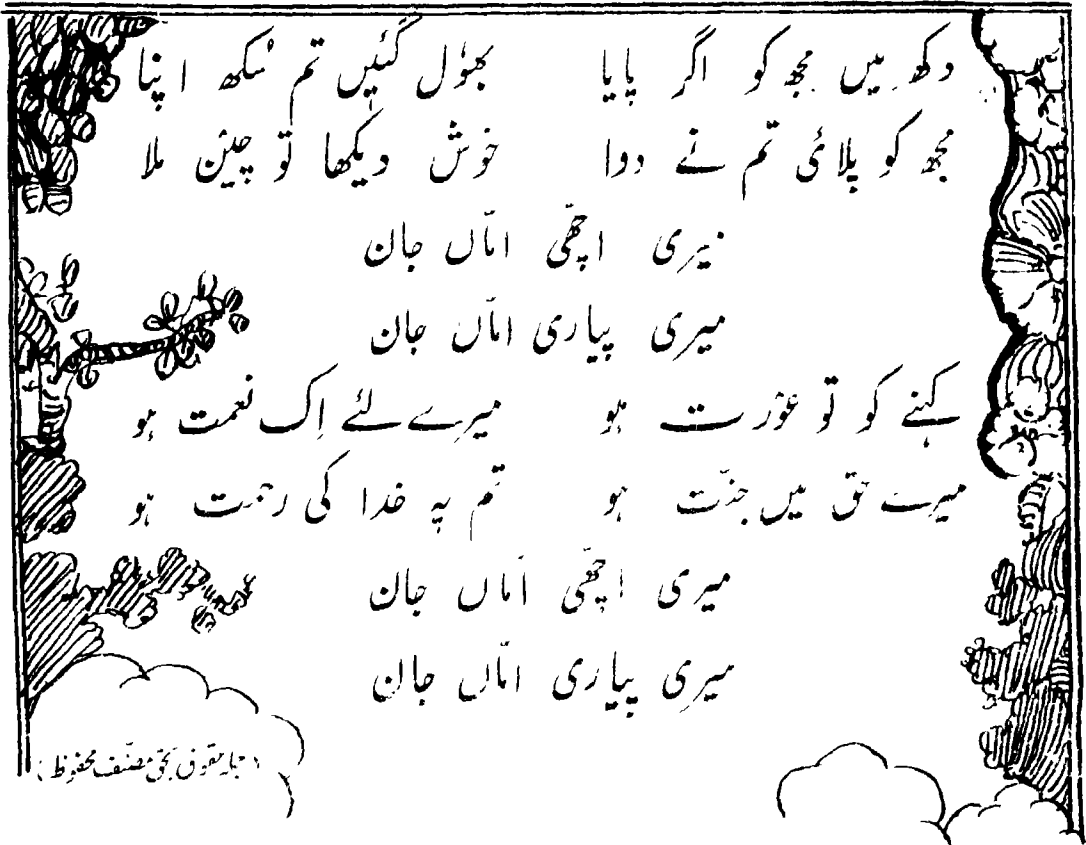 دکھ میں مجھ کو اگر پایا بھول گئیں تم سُکھ اپنا
مجھ کو پلائی تم نے دوا خوش دیکھا تو چین ملا
میری اچھّی امّاں جان
میری پیاری امّاں جان
کہنے کو تو عورت ہو میرے لئے اِک نعمت ہو
میرے حق میں جنّت ہو تم پہ خدا کی رحمت ہو
میری اچھّی امّاں جان
میری پیاری امّاں جان
(جملہ حقوق بحقِ مصنّف محفوظ)